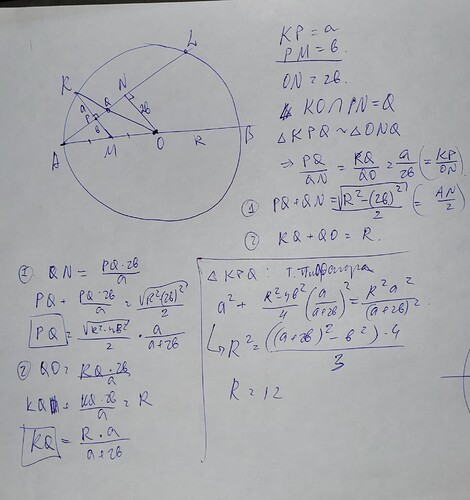 L
K
N
Q
a
P
2b
b
A
M
O
R
B
KP = a
PM = b.
ON = 2b
KO ∩ PN = Q
△KPQ ~ △ONQ
⇒ PQ/QN = KQ/QO = a/2b (= KP/ON)
① PQ + QN = √(R² - (2b)²)/2 (= AN/2)
② KQ + QO = R.
① QN = PQ·2b/a
PQ + PQ·2b/a = √(R² - (2b)²)/2
PQ = √(R² - 4b²)/2 · a/(a+2b)
② QO = KQ·2b/a
KQ + KQ·2b/a = R
KQ = R·a/(a+2b)
△KPQ: т. Пифагора
a² + (R² - 4b²)/4 (a/(a+2b))² = R²a²/(a+2b)².
R² = ((a+2b)² - b²)·4/3
R = 12